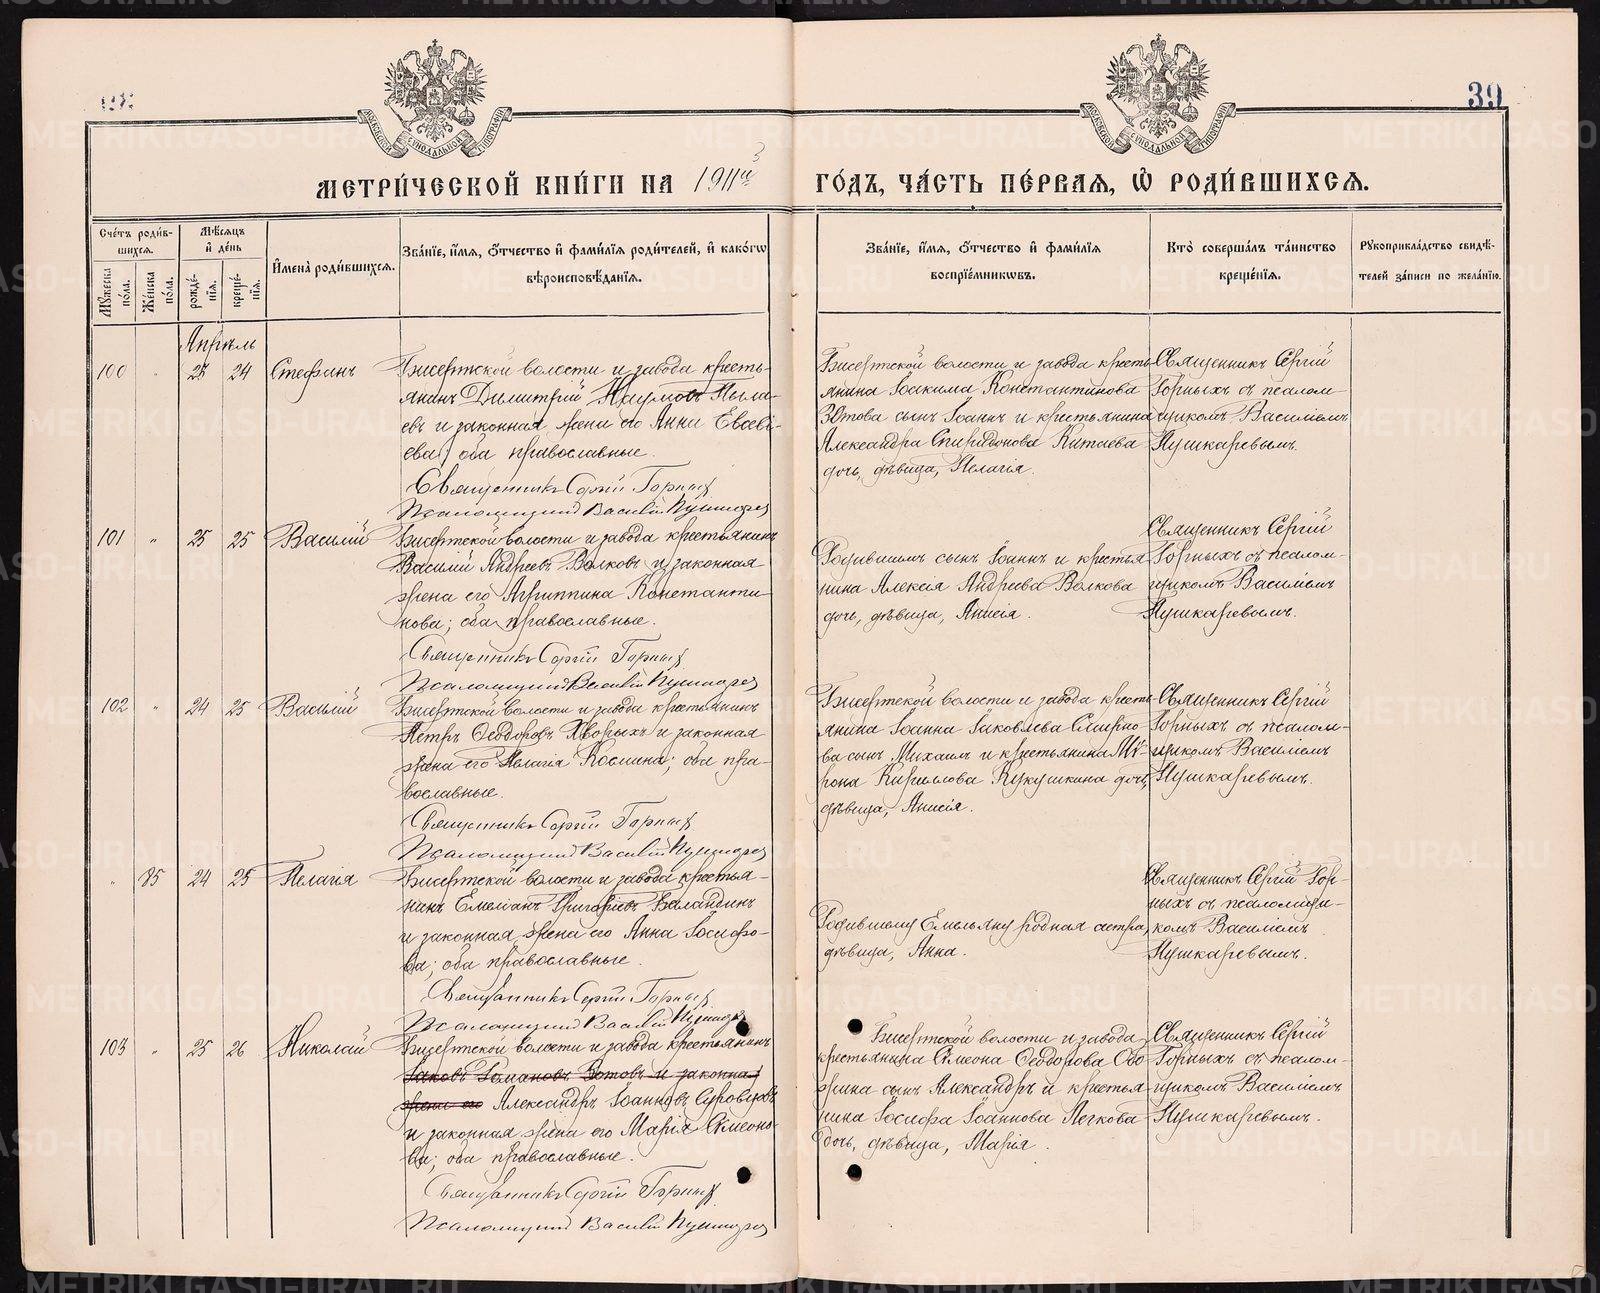 39
МЕТРИ́ЧЕСКОЙ КНИ́ГИ НА 1911й 3
ГО́ДЪ, ЧА́СТЬ ПЕ́РВАЯ, Ѡ҆ РОДИ́ВШИХСЯ.
Сче́тъ роди́в-
шихся.
Мꙋ́жеска по́ла.
Же́нска по́ла.
Мѣ́сяцъ и҆ де́нь
рожде́-
нїя.
креще́-
нїя.
И҆мена̀ роди́вшихся.
Зва́нїе, и҆́мя, ѻ҆́тчество и҆ фами́лїя роди́телей, и҆ како́гѡ
вѣроисповѣ́данїя.
Зва́нїе, и҆́мя, ѻ҆́тчество и҆ фами́лїя
воспрїе́мникѡвъ.
Кто̀ соверша́лъ та́инство
креще́нїя.
Рꙋкоприкла́дство свидѣ́-
телей за́писи по жела́нїю.
Апрѣль
100 " 23 24 Стефанъ
Бисертской волости и завода кресть-
янинъ Димитрій Наумовъ Пыла-
евъ и законная жена его Анна Евсеві-
ева; оба православные.
Священникъ Сергій Горныхъ
Псаломщикъ Василій Пушкаревъ
Бисертской волости и завода кресть-
янина Іоакима Константинова
Зотова сынъ Іоаннъ и крестьянина
Александра Спиридонова Китаева
дочь, дѣвица, Пелагія.
Священникъ Сергій
Горныхъ съ псалом-
щикомъ Василіемъ
Пушкаревымъ.
101 " 25 25 Василій
Бисертской волости и завода крестьянинъ
Василій Андреевъ Волковъ и законная
жена его Агриппина Константи-
нова; оба православные.
Священникъ Сергій Горныхъ
Псаломщикъ Василій Пушкаревъ
Родившаго сынъ Іоаннъ и крестья-
нина Алексія Андреева Волкова
дочь, дѣвица, Анисія.
Священникъ Сергій
Горныхъ съ псалом-
щикомъ Василіемъ
Пушкаревымъ.
102 " 24 25 Василій
Бисертской волости и завода крестьянинъ
Петръ Ѳеодоровъ Хворыхъ и законная
жена его Пелагія Космина; оба пра-
вославные.
Священникъ Сергій Горныхъ
Псаломщикъ Василій Пушкаревъ
Бисертской волости и завода кресть-
янина Іоанна Іаковлева Смирно-
ва сынъ Михаилъ и крестьянина Мѵ-
рона Кириллова Кукушкина дочь,
дѣвица, Анисія.
Священникъ Сергій
Горныхъ съ псалом-
щикомъ Василіемъ
Пушкаревымъ.
" 85 24 25 Пелагія
Бисертской волости и завода крестья-
нинъ Емеліанъ Григоріевъ Баландинъ
и законная жена его Анна Іосифо-
ва; оба православные.
Священникъ Сергій Горныхъ
Псаломщикъ Василій Пушкаревъ
Родившаго Емельяну родная сестра,
дѣвица, Анна.
Священникъ Сергій Гор-
ныхъ съ псаломщи-
комъ Василіемъ
Пушкаревымъ.
103 " 25 26 Николай
Бисертской волости и завода крестьянинъ
Іаковъ Романовъ Зотовъ и законная
жена его Александръ Іоанновъ Суровцовъ
и законная жена его Марія Симеоно-
ва; оба православные.
Священникъ Сергій Горныхъ
Псаломщикъ Василій Пушкаревъ
Бисертской волости и завода
крестьянина Симеона Ѳеодорова
сынъ Александръ и крестья-
нина Іосифа Іоаннова Легкова
дочь, дѣвица, Марія.
Священникъ Сергій
Горныхъ съ псалом-
щикомъ Василіемъ
Пушкаревымъ.